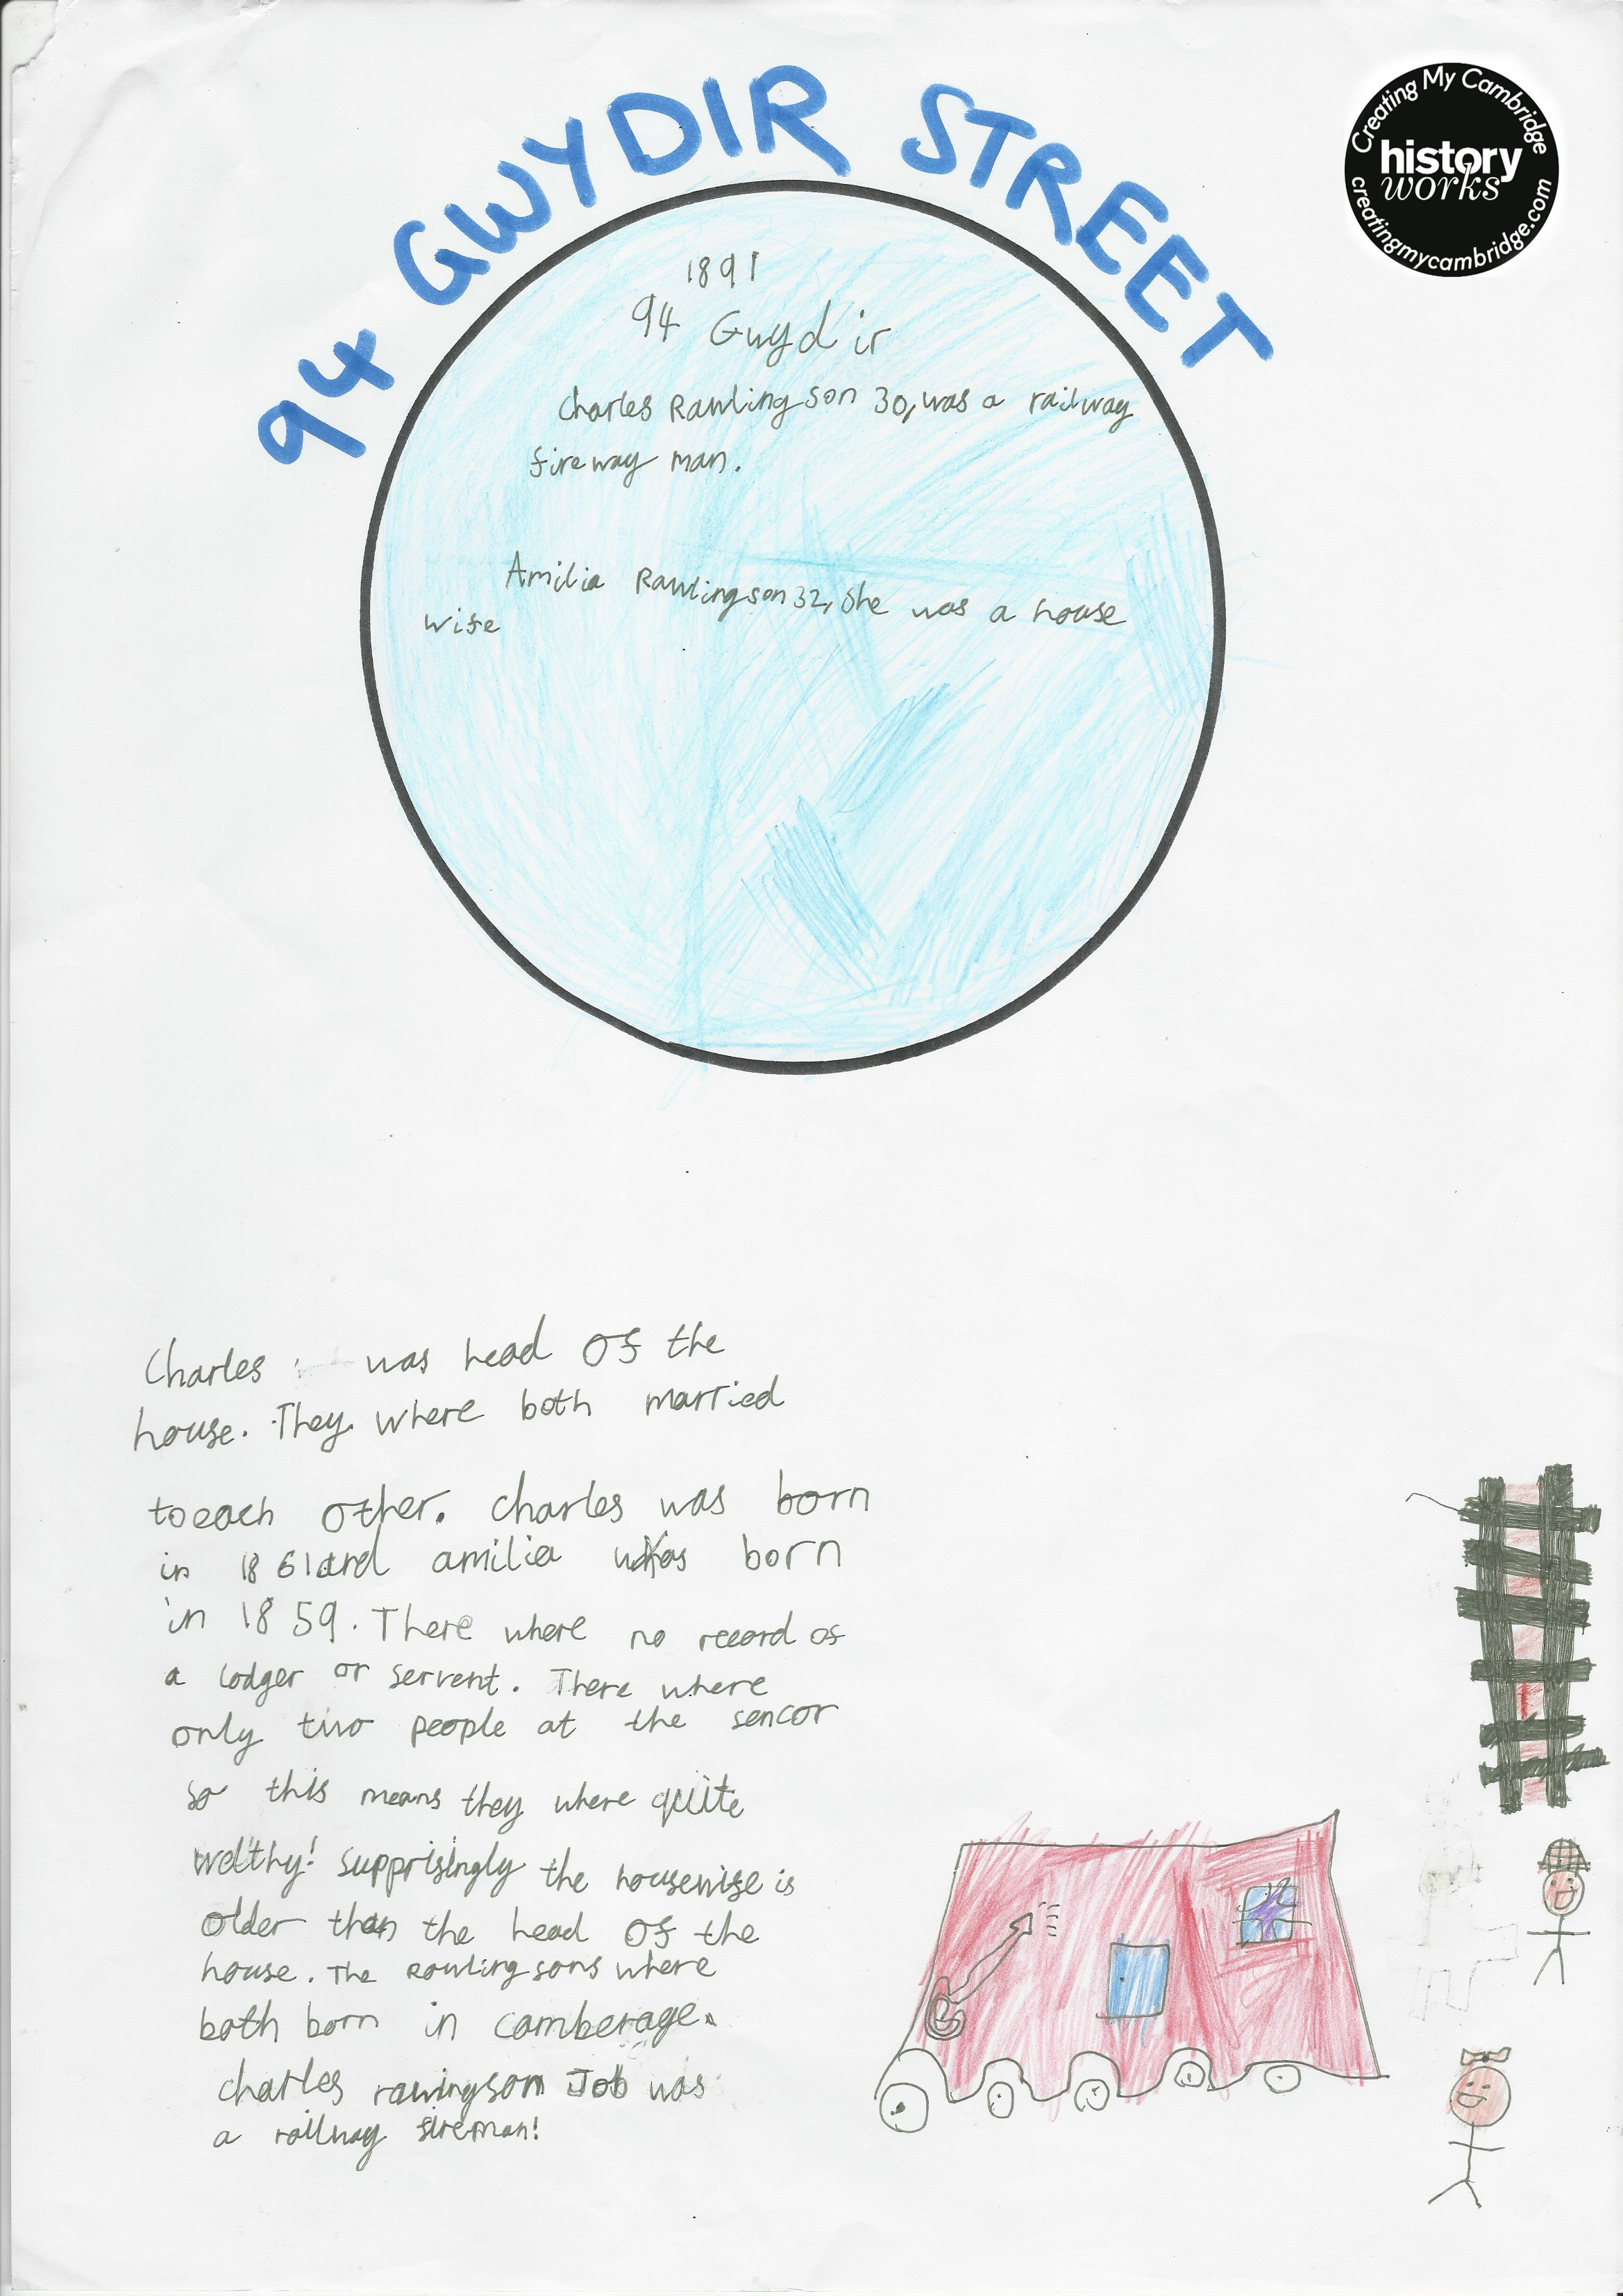 94 GWYDIR STREET
Creating My Cambridge
history
works
creatingmycambridge.com
1891
94 Gwydir
Charles Rawlingson 30, was a railway
fireway man.
Amilia Rawlingson 32, she was a house
wife
Charles was head of the
house. They where both married
to each other. Charles was born
in 1861 and amilia was born
in 1859. There where no record of
a lodger or servent. There where
only two people at the sencor
so this means they where quite
welthy! Supprisingly the housewife is
older than the head of the
house. The Rawlingsons where
both born in camberage.
Charles rawingson Job was
a railway fireman!